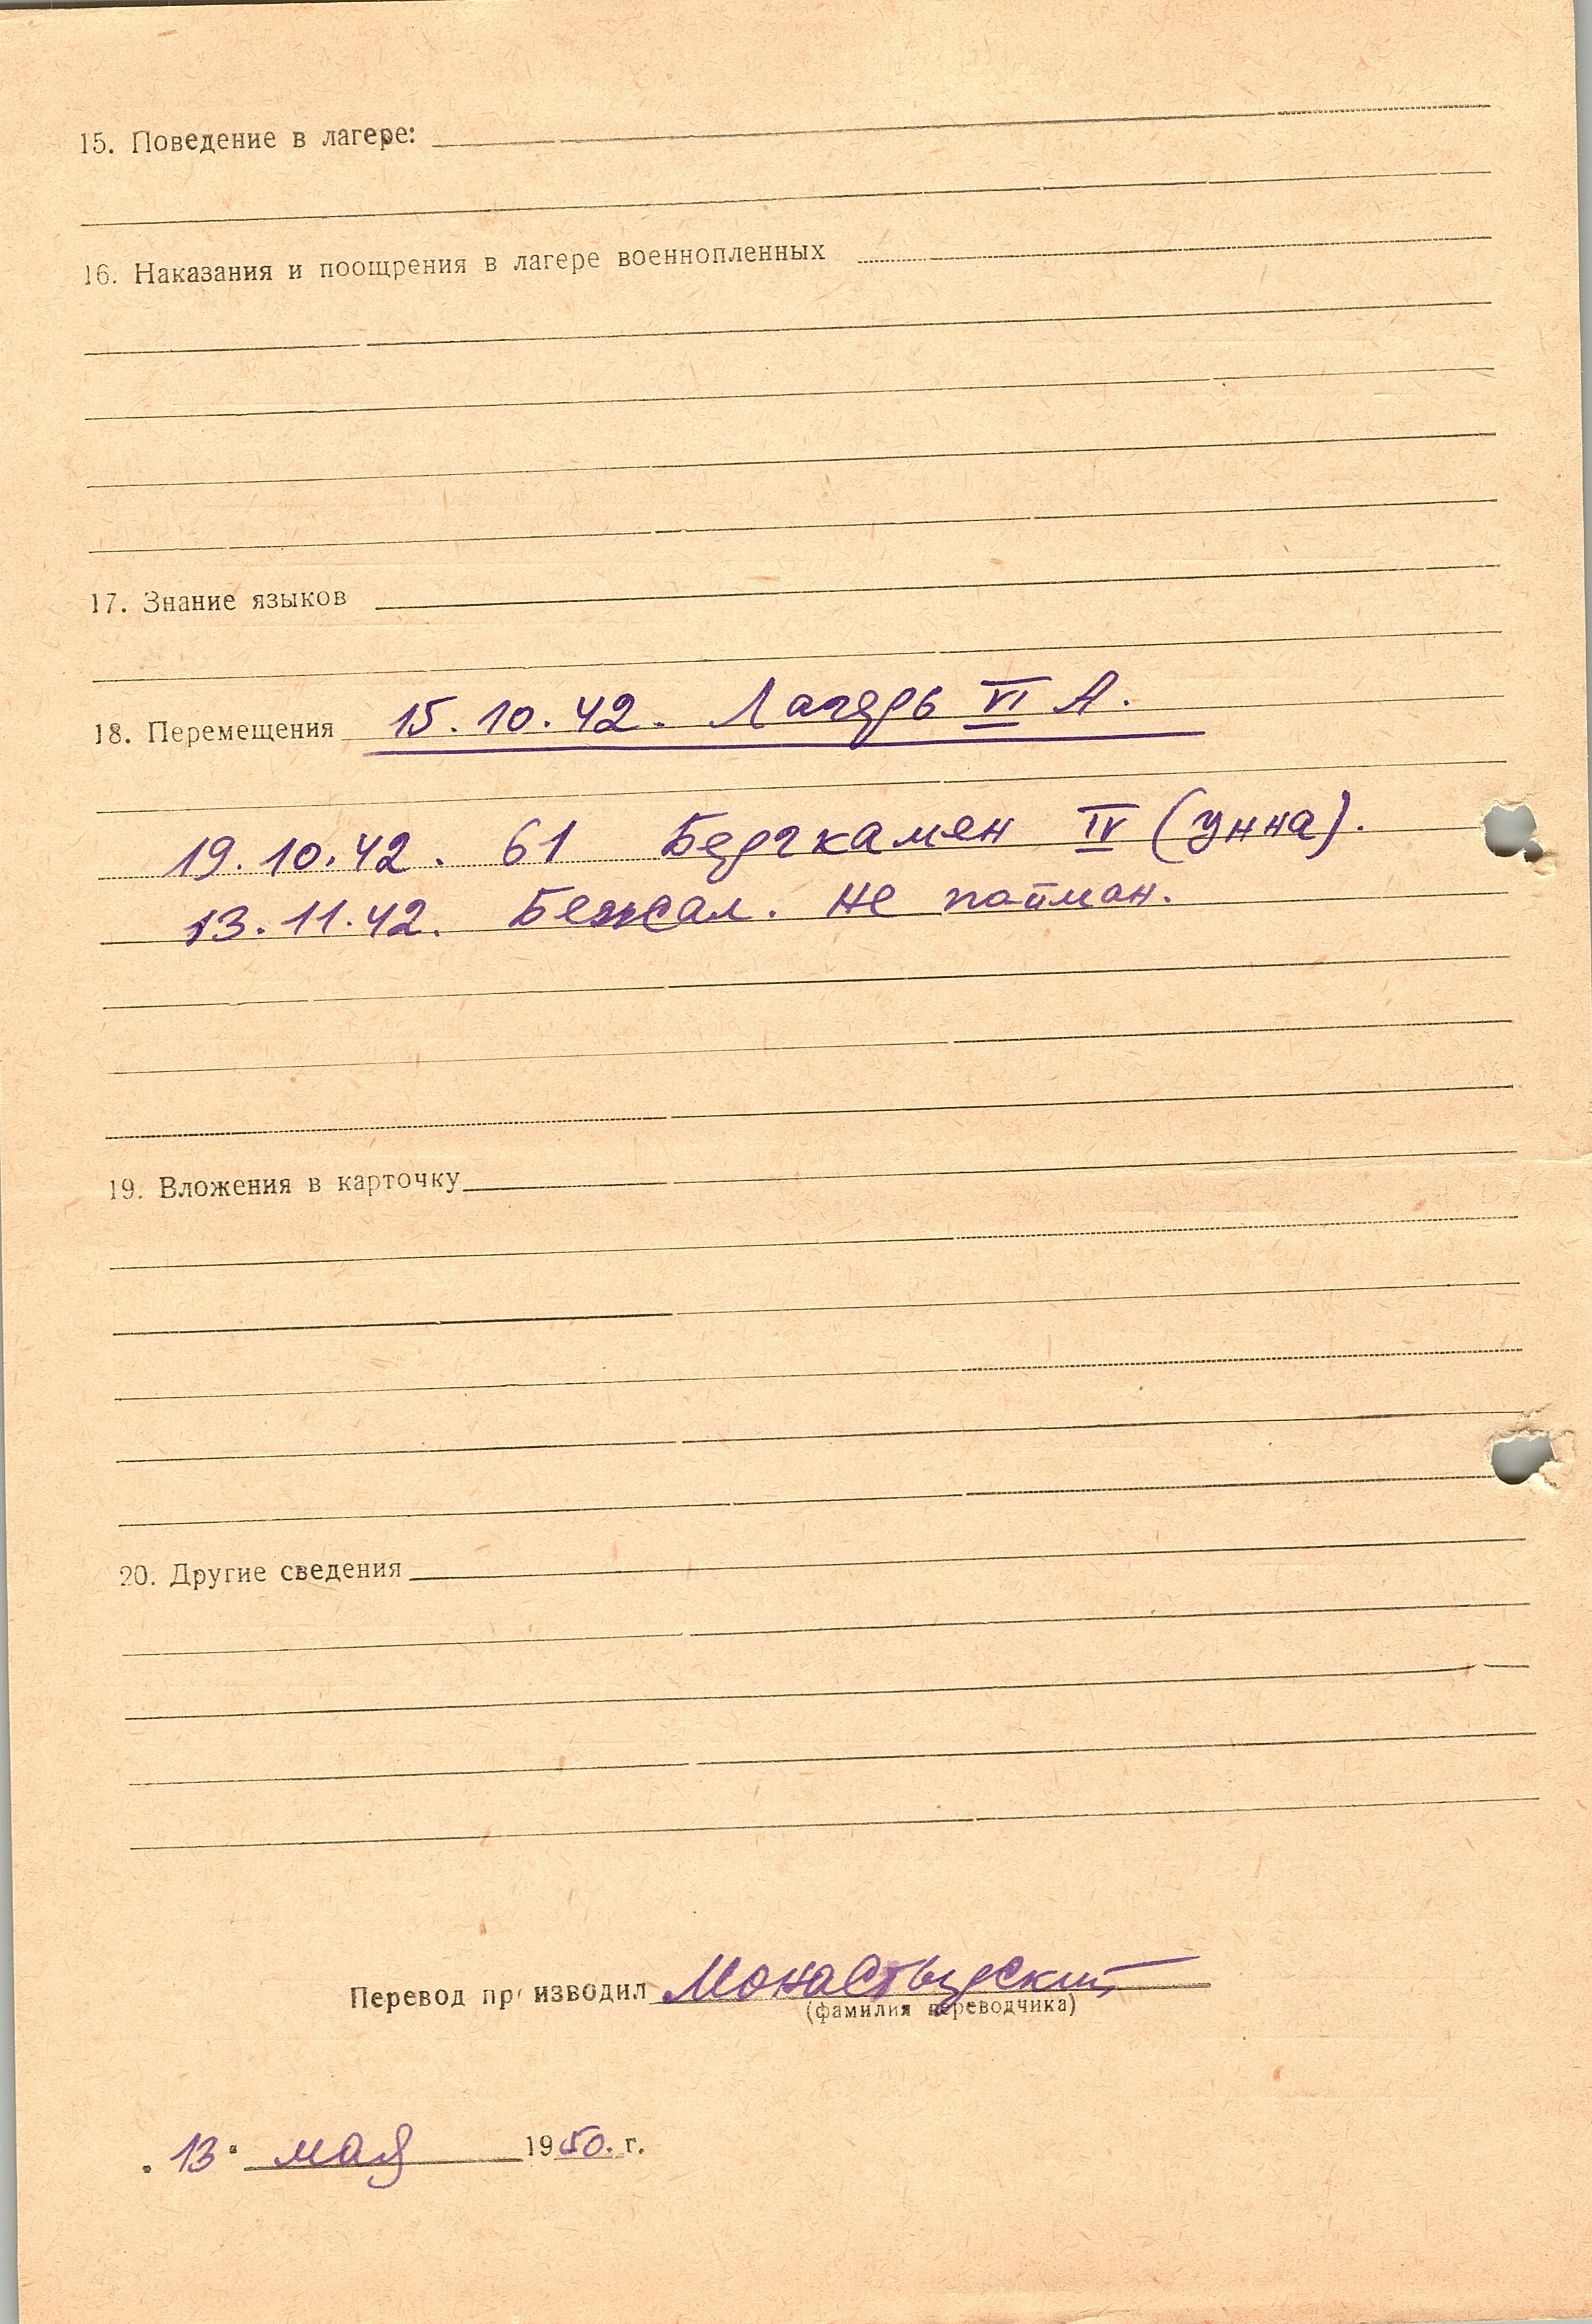 15. Поведение в лагере:
16. Наказания и поощрения в лагере военнопленных
17. Знание языков
18. Перемещения 15.10.42. Лагерь VI А.
19.10.42. 61 Бергкамен IV (Унна).
13.11.42. Бежал. Не пойман.
19. Вложения в карточку
20. Другие сведения
Перевод производил Монастырский
(фамилия переводчика)
„13" мая 1950. г.